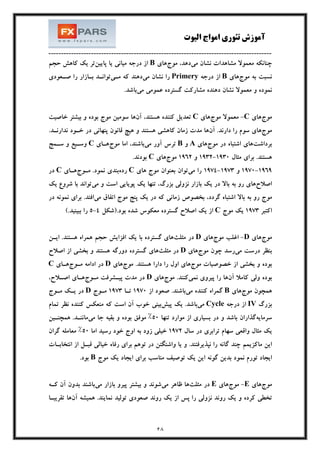 FXPARS
آموزش تئوری امواج الیوت
چنانکه معمولا مشاهدات نشان می‌دهد، موج‌های B از درجه میانی یا پایین‌تر یک کاهش حجم
نسبت به موج‌های B از درجه Primery را نشان می‌دهند که می‌توانند بازار را صعودی
نموده و معمولا نشان دهنده مشارکت گسترده عمومی می‌باشد.
موج‌های C- معمولا موج‌های C تعدیل کننده هستند. آن‌ها سومین موج بوده و بیشتر خاصیت
موج‌های سوم را دارند. آن‌ها مدت زمان کاهشی هستند و هیچ قانون پنهانی در خود ندارند.
برداشت‌های اشتباه در موج‌های A و B ترس آور می‌باشند. اما موج‌های C وسیع و سمج
هستند. برای مثال ۱۹۳۰-۱۹۳۲ و ۱۹۶۲ موج‌های C بودند.
۱۹۶۹-۱۹۷۰ و ۱۹۷۳-۱۹۷۴ را می‌توان بعنوان موج های C رده‌بندی نمود. موج‌های C در
اصلاح‌های رو به بالا در یک بازار نزولی بزرگ، تنها یک پویایی است و می‌تواند با شروع یک
موج رو به بالا اشتباه گردد، بخصوص زمانی که در یک پنج موج اتفاق می‌افتد. برای نمونه در
اکتبر ۱۹۷۳ یک موج C از یک اصلاح گسترده معکوس شده بود.(شکل ۴-۵ را ببینید.)
موج‌های D- اغلب موج‌های D در مثلث‌های گسترده با یک افزایش حجم همراه هستند. این
بنظر درست می‌رسد چون موج‌های D در مثلث‌های گسترده دورگه هستند و بخشی از اصلاح
بوده و بخشی از خصوصیات موج‌های اول را دارا هستند. موج‌های D در ادامه موج‌های C
بوده ولی کاملا آن‌ها را پیروی نمی‌کنند. موج‌های D در مدت پیشرفت موج‌های اصلاح،
همچون موج‌های B گمراه کننده می‌باشند. صعود از ۱۹۷۰ تا ۱۹۷۳ موج D در یک موج
بزرگ IV از درجه Cycle می‌باشد. یک پیش‌بینی خوب آن است که منعکس کننده نظر تمام
سرمایه‌گذاران باشد و در بسیاری از موارد تنها ۵۰٪ موفق بوده و بقیه جا می‌مانند. همچنین
یک مثال واقعی سهام ترابری در سال ۱۹۷۴ خیلی زود به اوج خود رسید اما ۵۰٪ معامله گران
این ماکزیمم چند گانه را نپذیرفتند. و یا واشنگتن در توهم برای رفاه خیالی قبل از انتخابات
ایجاد تورم نمود بدین گونه این یک توصیف مناسب برای ایجاد یک موج B بود.
موج‌های E- موج‌های E در مثلث‌ها ظاهر می‌شوند و بیشتر پیرو بازار می‌باشند بدون آن که
تخطی کرده و یک روند نزولی را پس از یک روند صعودی تولید نمایند. همیشه آن‌ها تقریبا
۴۸